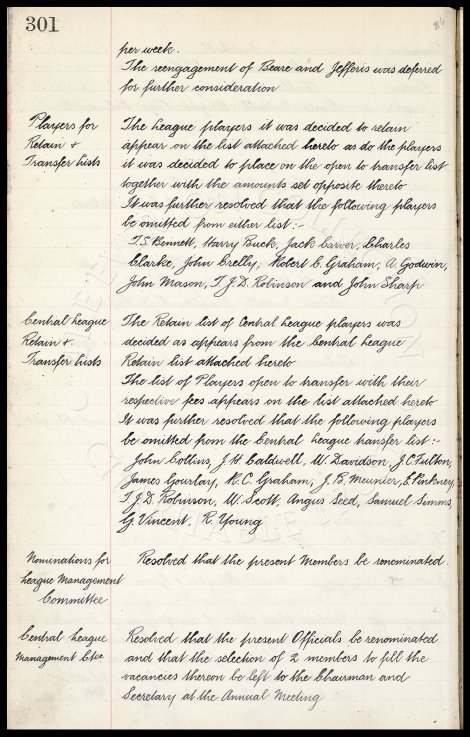 301
per week.
The reengagement of Beare and Jefferis was deferred
for further consideration
Players for
Retain +
Transfer Lists
The League players it was decided to retain
appear on the list attached hereto as do the players
it was decided to place on the open to transfer list
together with the amounts set opposite thereto
It was further resolved that the following players
be omitted from either list:-
T.S. Bennett, Harry Buck, Jack Carver, Charles
Clarke, John Crelly, Robert C. Graham, A. Godwin,
John Mason, T.J.D. Robinson and John Sharp
Central League
Retain +
Transfer Lists
The Retain list of Central League players was
decided as appears from the Central League
Retain list attached hereto
The list of Players open to transfer with their
respective fees appears on the list attached hereto
It was further resolved that the following players
be omitted from the Central League transfer list:-
John Collins, J.H. Caldwell, W. Davidson, J.C. Fulton,
James Gourlay, R.C. Graham, J.B. Meunier, E. Pinkney,
T.J.D. Robinson, W. Scott, Angus Seed, Samuel Simms,
G. Vincent, R. Young
Nominations for
League Management
Committee
Resolved that the present Members be renominated.
Central League
Management Ctee
Resolved that the present Officials be renominated
and that the selection of 2 members to fill the
vacancies thereon be left to the Chairman and
Secretary at the Annual Meeting